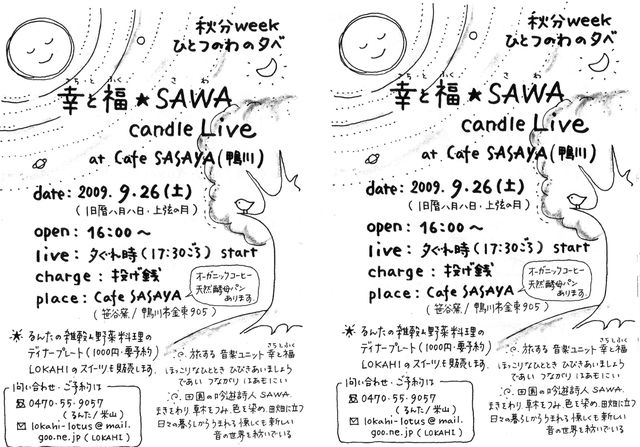 秋分week
ひとつのわの夕べ
さちとふく さわ
幸と福★SAWA
candle Live
at Cafe SASAYA(鴨川)
date: 2009. 9.26(土)
(旧暦八月八日・上弦の月)
open: 16:00～
live: 夕ぐれ時(17:30ごろ) start
charge: 投げ銭
place: Cafe SASAYA
(笹谷窯/鴨川市金束905)
オーガニックコーヒー
天然酵母パン
あります。
るんたの雑穀と野菜料理の
ディナープレート(1000円・要予約)
LOKAHIのスイーツも販売します。
問い合わせ・ご予約は
0470-55-9057
(るんた/米山)
lokahi-lotus@mail.
goo.ne.jp(LOKAHI)
さちとふく
旅する 音楽ユニット 幸と福
ほっこりなひととき ひびきあいましょう
であい つながり はあもにい
田園の吟遊詩人 SAWA.
まきをわり、草木をつみ、色を染め、田畑に立つ
日々の暮らしからうまれる懐しくも新しい
音の世界を紡いでいる
秋分week
ひとつのわの夕べ
さちとふく さわ
幸と福★SAWA
candle Live
at Cafe SASAYA(鴨川)
date: 2009. 9.26(土)
(旧暦八月八日・上弦の月)
open: 16:00～
live: 夕ぐれ時(17:30ごろ) start
charge: 投げ銭
place: Cafe SASAYA
(笹谷窯/鴨川市金束905)
オーガニックコーヒー
天然酵母パン
あります。
るんたの雑穀と野菜料理の
ディナープレート(1000円・要予約)
LOKAHIのスイーツも販売します。
問い合わせ・ご予約は
0470-55-9057
(るんた/米山)
lokahi-lotus@mail.
goo.ne.jp(LOKAHI)
さちとふく
旅する 音楽ユニット 幸と福
ほっこりなひととき ひびきあいましょう
であい つながり はあもにい
田園の吟遊詩人 SAWA.
まきをわり、草木をつみ、色を染め、田畑に立つ
日々の暮らしからうまれる懐しくも新しい
音の世界を紡いでいる